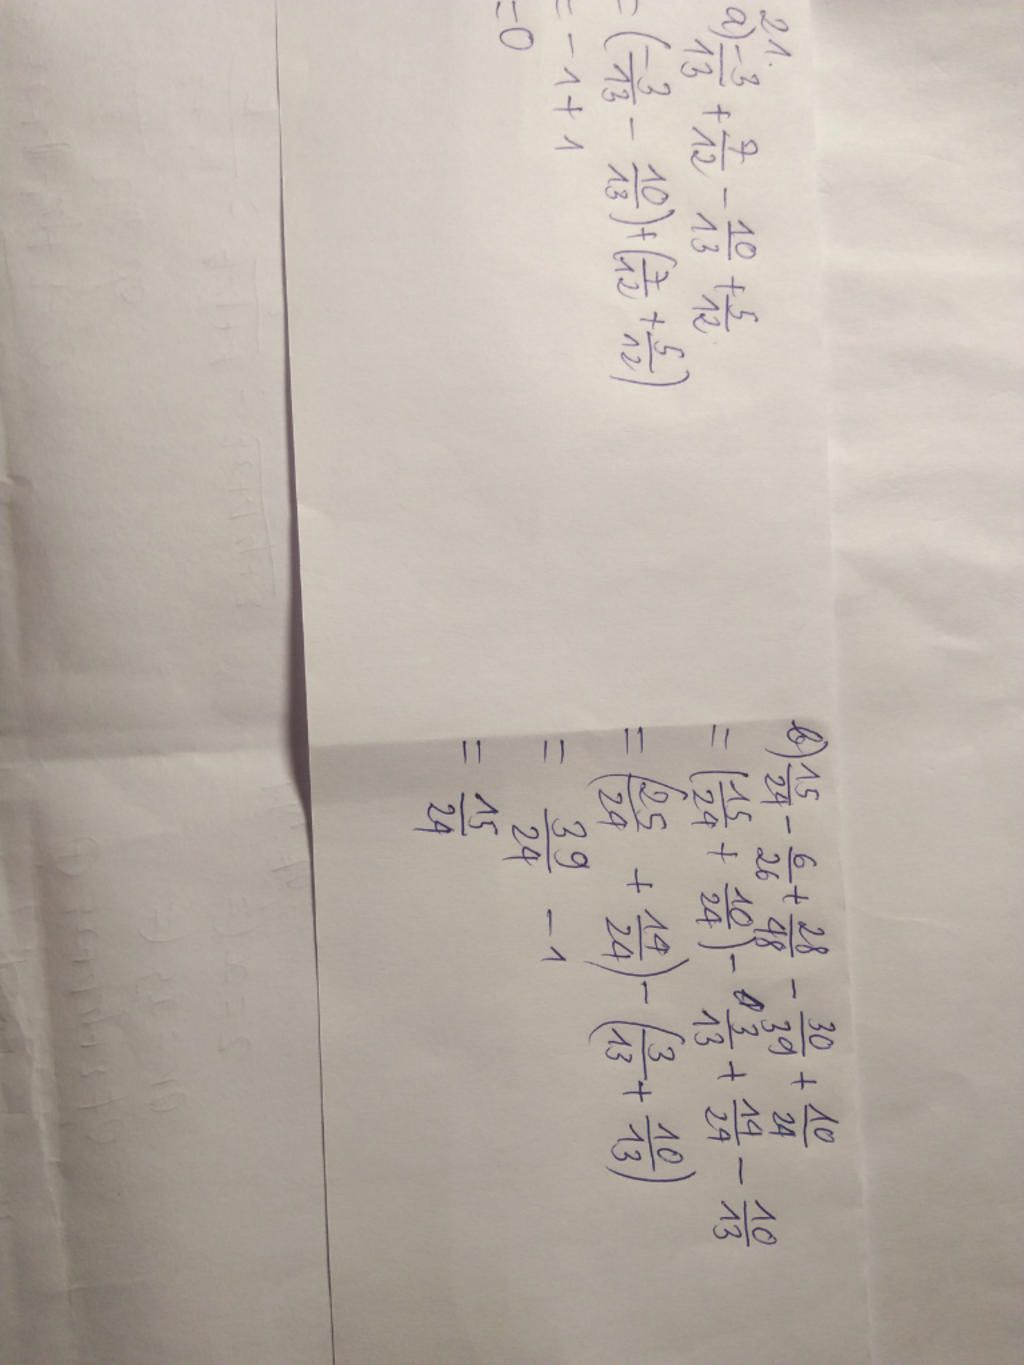 21.
a) -3/13 + 7/12 - 10/13 + 5/12
= (-3/13 - 10/13) + (7/12 + 5/12)
= -1 + 1
= 0
b) 15/24 - 6/26 + 28/48 - 30/39 + 10/24
= (15/24 + 10/24) - 3/13 + 14/24 - 10/13
= (25/24 + 14/24) - (3/13 + 10/13)
= 39/24 - 1
= 15/24